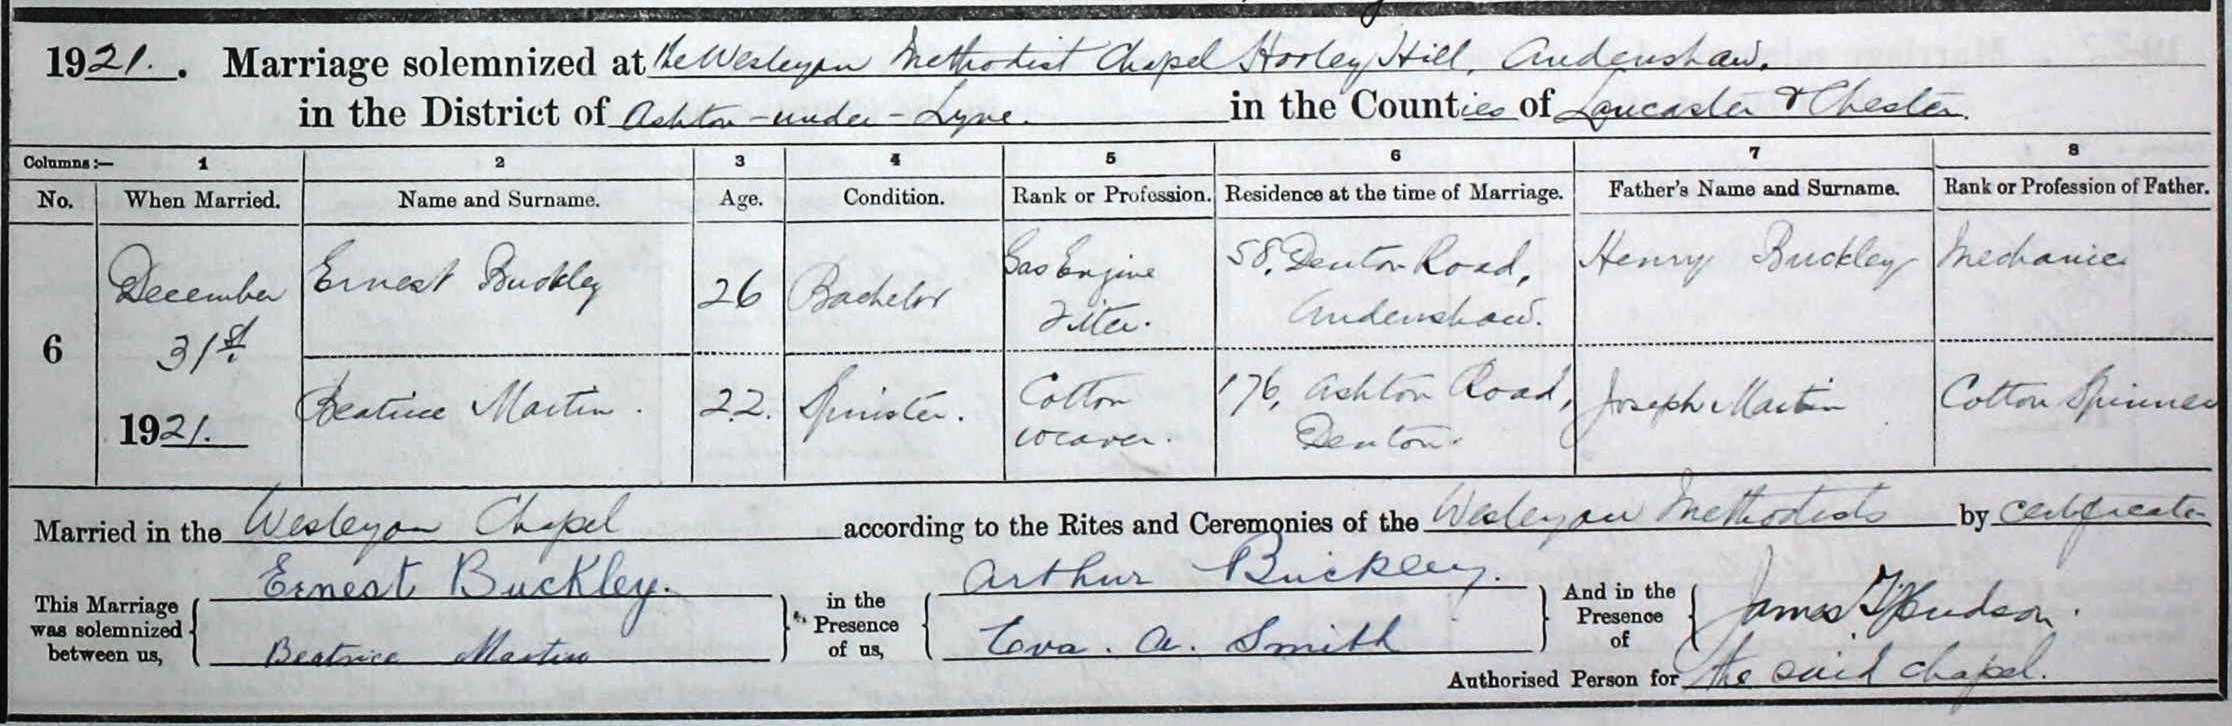 1921. Marriage solemnized at the Wesleyan Methodist Chapel Hooley Hill, Audenshaw.
in the District of Ashton-under-Lyne. in the Counties of Lancaster & Chester.
Columns:— 1 2 3 4 5 6 7 8
No. When Married. Name and Surname. Age. Condition. Rank or Profession. Residence at the time of Marriage. Father's Name and Surname. Rank or Profession of Father.
6 December 31st 1921. Ernest Buckley 26 Bachelor Gas Engine Fitter. 58, Denton Road, Audenshaw. Henry Buckley Mechanic
Beatrice Martin. 22. Spinster. Cotton weaver. 176, Ashton Road, Denton. Joseph Martin Cotton Spinner
Married in the Wesleyan Chapel according to the Rites and Ceremonies of the Wesleyan Methodists by certificate
This Marriage was solemnized between us, Ernest Buckley. Beatrice Martin in the Presence of us, Arthur Buckley. Eva. A. Smith And in the Presence of James T Hudson.
Authorised Person for the said chapel.